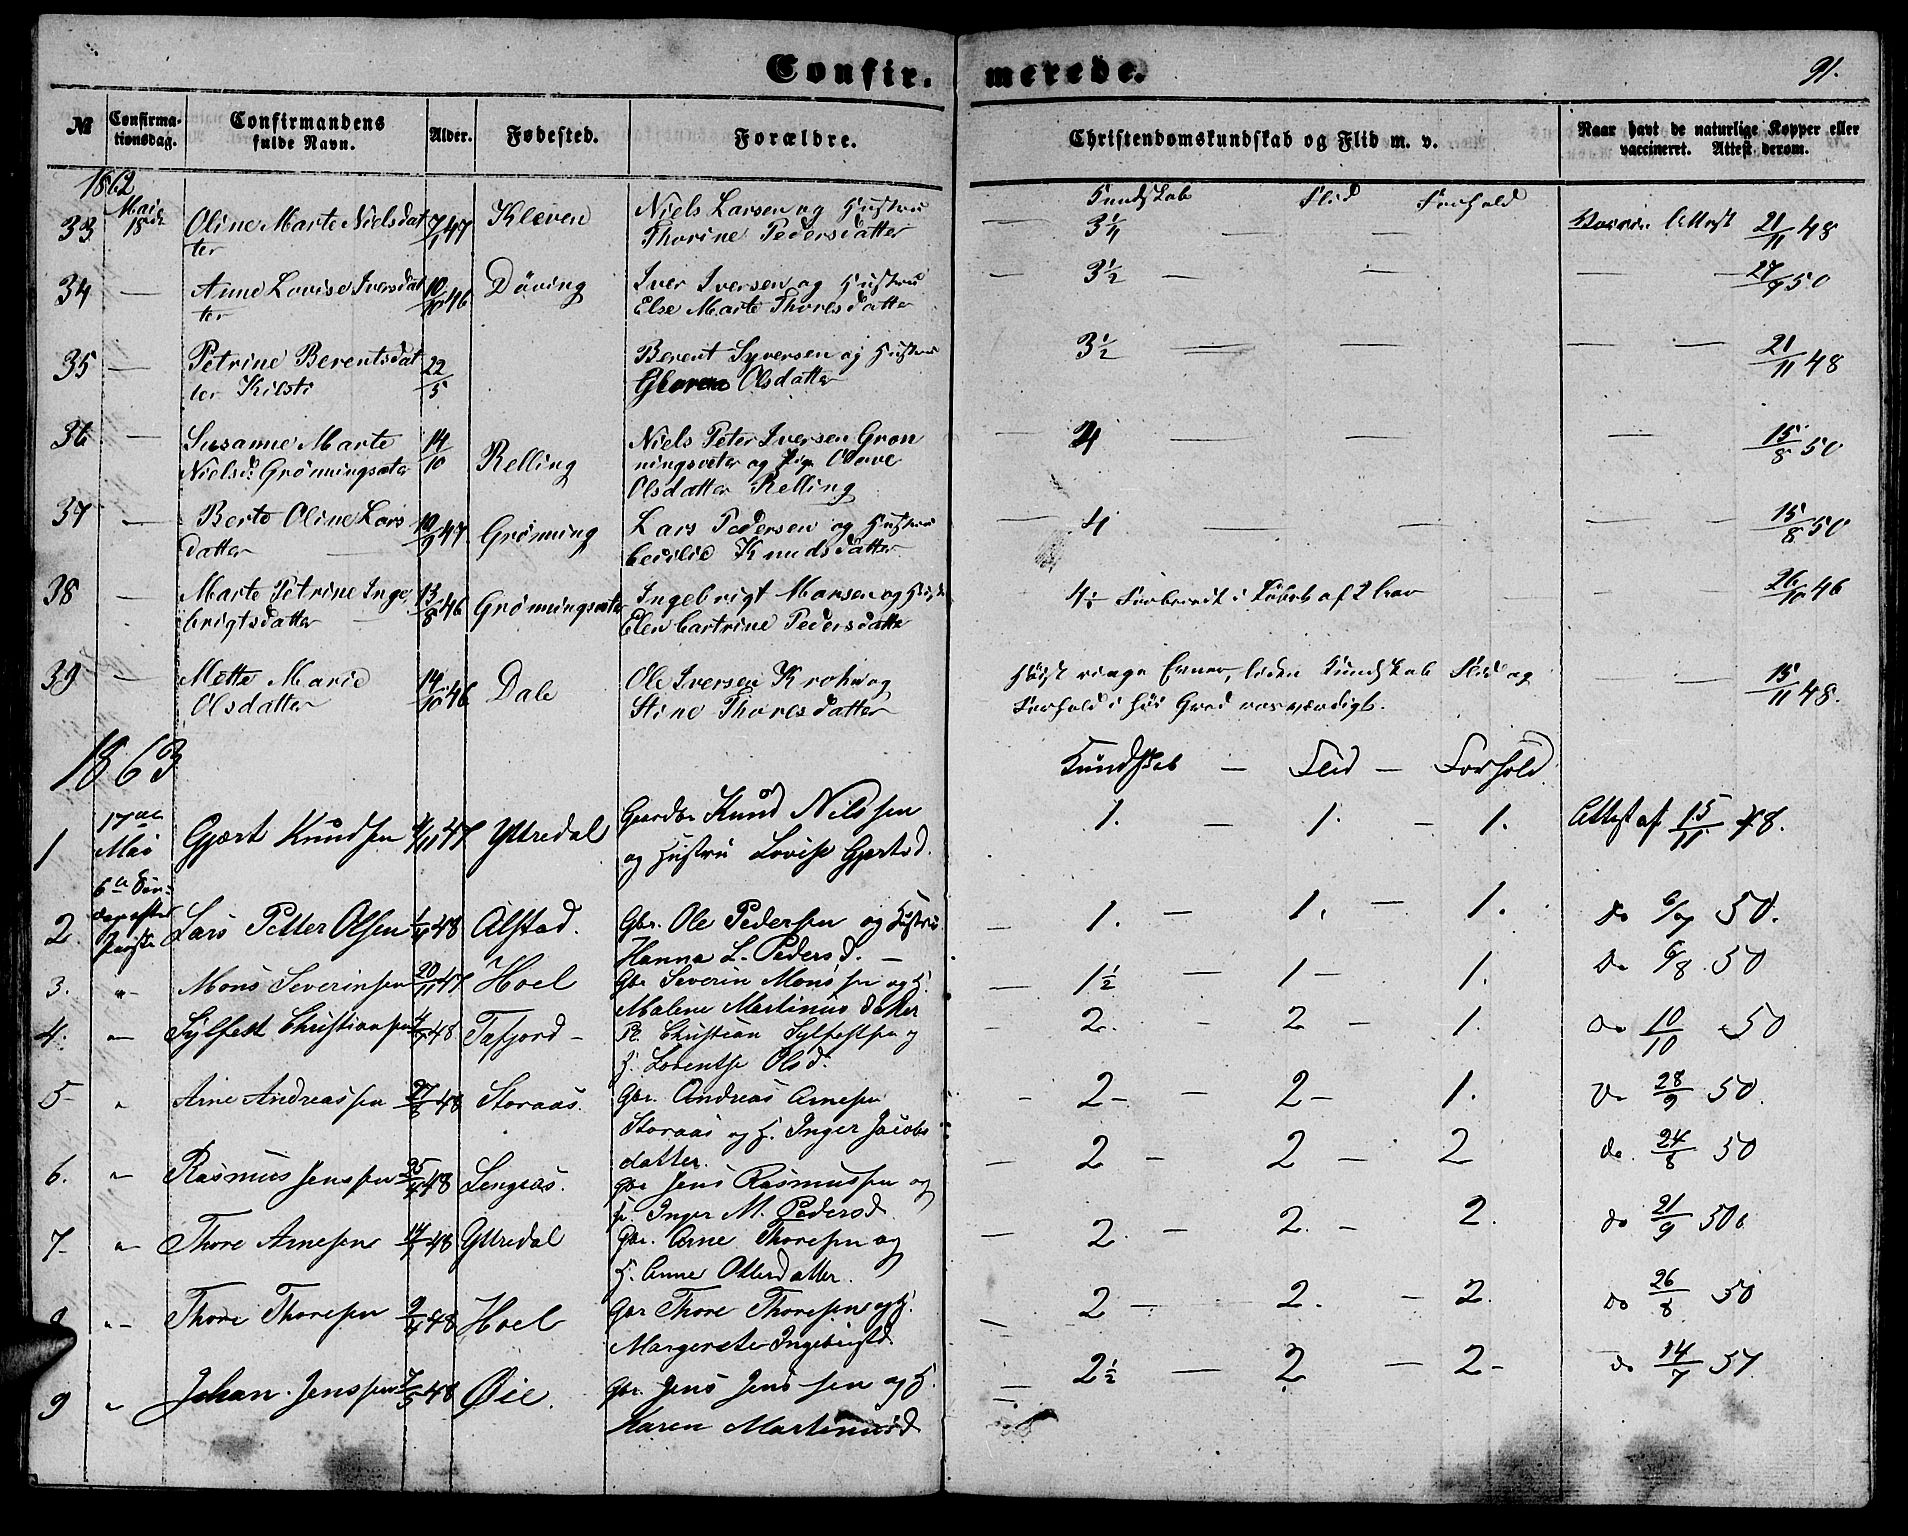 Confirmerede.
91.
№ Confirmationsdag. Confirmandens fulde Navn. Alder. Fødested. Forældre. Christendomskundskab og Flid m. v. Naar havt de naturlige Kopper eller vaccineret. Attest derom.
1862 Kundskab Flid Forhold
33 Mai 18de Oline Marte Nielsdatter 7/1 47 Kleven Niels Larsen og Hustru Thorine Pedersdatter 3¼ — — Attest 21/11 48
34 — Anne Lovise Iversdatter 10/10 46 Döving Iver Iversen og Hustru Else Marte Thoresdatter — 3½ — — — — 27/9 50
35 — Petrine Berentsdatter 22/5 Berent Syversen og Hustru Olsdatter 3½ — — — — 21/11 48
36 — Susanne Marte Nielsd. Grönningsæter 14/10 Relling Niels Peter Iversen Grönningsæter og Pige Olave Olsdatter Relling — 4 — — — 15/8 50
37 — Berte Oline Larsdatter 10/9 47 Grönning Lars Pedersen og Hustru Cecilie Knudsdatter — 4 — — — — 15/8 50
38 — Marte Petrine Ingebrigtsdatter 13/8 46 Grönningsæter Ingebrigt Monsen og Hustr Elen Cartrine Pedersdatter 4½ Forberedt i Løbet af 2 Aar — — 26/10 46
39 — Mette Marie Olsdatter 14/10 46 Dale Ole Iversen Krohn og Stine Thoresdatter Høist ringe Evner, liden Kundskab Flid og Forhold i høi Grad rosværdigt. — — 15/11 48.
1863 Kundskab — Flid — Forhold
1 17de Mai Gjært Knudsen /11 47 Yttredal Gaardbr Knud Nilssen og Hustru Lovise Gjertsd. 1. — 1. — 1. Attest af 15/11 48.
2. 5te Søndag efter Paaske Lars Petter Olsen 1/4 48 Alstad. Gbr. Ole Pedersen og Hustru Hanna L. Pedersd. — — 1. — 1. 1. do 6/7 50.
3. " Mons Severinsen 20/11 47 Hoel Gbr Severin Monssen og H. Malene Martinusdatter — 1½ — 1 — 1. Do 6/8 50
4. " Sylfest Christiansen 48 Tafjord — Pl. Christian Sylfestsen og H. Lorentse Olsd. — 2. — 2 — 1. Do 10/10 50
5 " Arne Andreassen 27/8 48 Storaas. Gbr. Andreas Arnesen Storaas og H. Inger Jacobsdatter. — 2 — — 2 — 1. Do 28/9 50.
6. " Rasmus Jenssen 25/4 48 Lengaas. Gbr Jens Rasmussen og H. Inger M. Pedersd. — 2 — 2 — 2 do. 24/8 50
7 " Thore Arnesen 48 Yttredal Gbr. Arne Thoresen og H. Anne Ottersdatter. — 2. — 2. — 2. do 21/9 50.
8 " Thore Thoresen 9/4 48 Hoel Gbr Thore Thoresen og H. Margerete Ingebrigtsd. — 2 — 2. — 2. do 26/8 50
9 " Johan Jenssen 7/5 48 Øie. Gbr. Jens Jenssen og H. Karen Martinusd — 2½ — 2 — 2 — do 14/7 51.